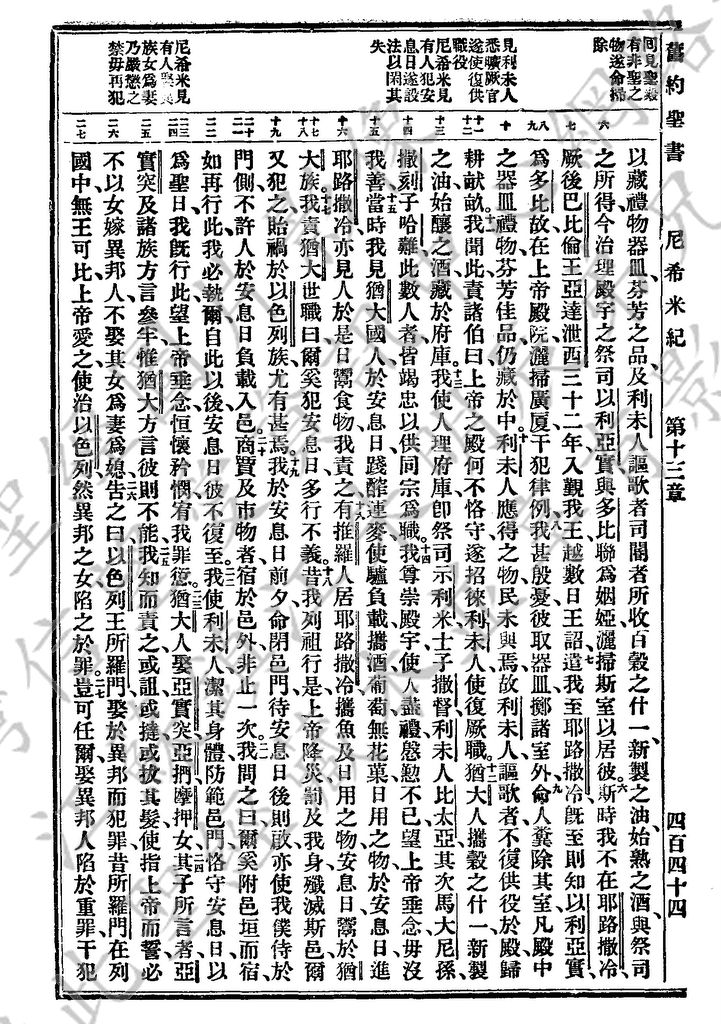 舊約聖書 尼希米紀 第十三章 四百四十四
同見聖殿
有非聖之
物遂命掃
除
見利未人
悉曠厥官
遂使復供
職役
尼希米見
有人犯安
息日遂設
法以閑其
失
尼希米見
有人娶異
族女為妻
乃嚴懲之
禁毋再犯
六
七
八
九
十
十一
十二
十三
十四
十五
十六
十七
十八
十九
二十
二一
二二
二三
二四
二五
二六
二七
以藏禮物器皿芬芳之品及利未人謳歌者司閽者所收百穀之什一新製之油始熟之酒與祭司
之所得今治理殿宇之祭司以利亞實與多比聯為姻婭灑掃斯室以居彼六斯時我不在耶路撒冷
厥後巴比倫王亞達泄西三十二年入覲我王越數日王詔遣我七至耶路撒冷旣至則知以利亞實
為多比故在上帝殿院灑掃廣厦干犯律例八我甚殷憂彼取器皿擲諸室外九命人糞除其室凡殿中
之器皿禮物芬芳佳品仍藏於中十利未人應得之物民未與焉故利未人謳歌者不復供役於殿歸
耕畎畝十一我聞此責諸伯曰上帝之殿何不恪守遂招徠利未人使復厥職十二猶大人攜穀之什一新製
之油始釀之酒藏於府庫十三我使人理府庫卽祭司示利米士子撒督利未人比太亞其次馬大尼孫
撒刻子哈難此數人者皆竭忠以供同宗為職十四我尊崇殿宇使人盡禮慇懃不已望上帝垂念毋沒
我善十五當時我見猶大國人於安息日踐醡連麥使驢負載攜酒葡萄無花菓日用之物於安息日進
耶路撒冷亦見人於是日鬻食物我責之十六有推羅人居耶路撒冷攜魚及日用之物安息日鬻於猶
大族十七我責猶大世職曰爾奚犯安息日多行不義十八昔我列祖行是上帝降災罰及我身殲滅斯邑爾
又犯之貽禍於以色列族尤有甚焉十九我於安息日前夕命閉邑門待安息日後則啟亦使我僕侍於
門側不許人於安息日負載入邑二十商賈及市物者宿於邑外非止一次二一我問之曰爾奚附邑垣而宿
如再行此我必執爾自此以後安息日彼不復至二二我使利未人潔其身體防範邑門恪守安息日以
為聖日我旣行此望上帝垂念恒懷矜憫宥我罪愆二三猶大人娶亞實突亞捫摩押女二四其子所言者亞
實突及諸族方言參半惟猶大方言彼則不能二五我知而責之或詛或撻或拔其髮使指上帝而誓必
不以女嫁異邦人不娶其女為妻為媳二六告之曰以色列王所羅門娶於異邦而犯罪昔所羅門在列
國中無王可比上帝愛之使治以色列然異邦之女陷之於罪二七豈可任爾娶異邦人陷於重罪干犯